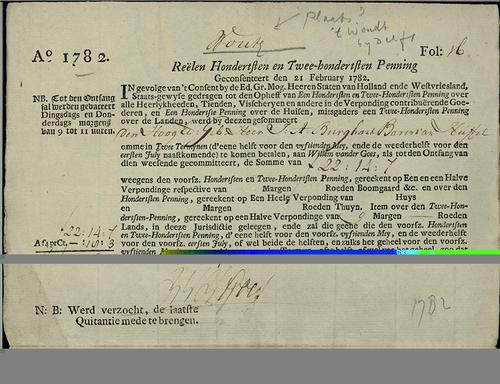 plaats?
't Woudt
by Delft
Woudt
Aº 1782.
Fol: 16
Reëlen Hondertsten en Twee-hondertsten Penning
Geconsenteert den 21 February 1782.
NB. Tot den Ontfang
sal werden gevaceert
Dingsdags en Don-
derdags morgens
van 9 tot 11 uuren.
IN gevolge van 't Consent by de Ed. Gr. Mog. Heeren Staten van Holland ende Westvriesland,
Staats-gewyse gedragen tot den Opheff van Een Hondertsten en Twee-hondertsten Penning over
alle Heerlykheeden, Tienden, Visscheryen en andere in de Verponding contribuërende Goe-
deren, en Een Hondertste Penning over de Huisen, mitsgaders een Twee-hondertsten Penning
over de Landen, werd by deezen gesommeert
Den Hoog Heer
omme in Twee Termynen (d'eene helft voor den vyftienden Mey, ende de wederhelft voor den
eersten July naastkomende) te komen betalen, aan Willem vander Goes, als tot den Ontfang
dien weesende gecommitteert, de Somme van
22:14:7
weegens den voorsz. Hondertsten en Twee-hondertsten Penning, gereekent op Een en een Halve
Verpondinge respective van Margen Roeden Boomgaard &c. en over den
Hondertsten Penning, gereekent op Een Heele Verponding van Huys
en Margen Roeden Thuyn. Item over den Twee-hon-
dertsten-Penning, gereekent op een Halve Verpondinge van 9 Margen Roeden
Lands, in deeze Jurisdictie gelegen, ende zal die geene die den voorsz. Hondertsten
en Twee-hondertsten Penning, d'eene helft voor den voorsz. vyftienden Mey, en de wederhelft
voor den voorsz. eersten July, of wel beide de helften, en zulks het geheel voor den voorsz.
22:14:7
vyftienden
N: B: Werd verzocht, de laatste
Quitantie mede te brengen.
1782